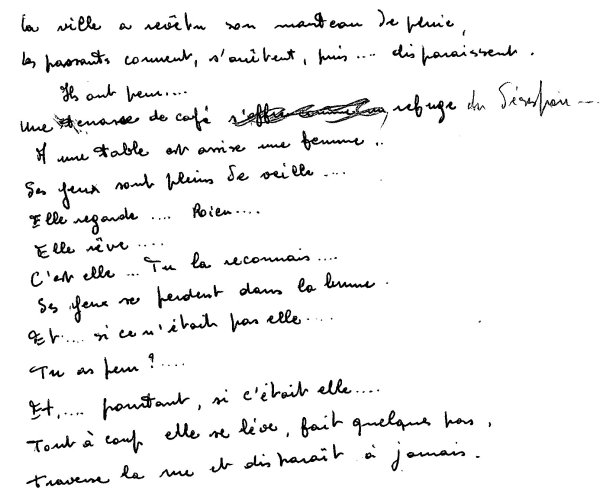 la ville a revêtu son manteau de pluie,
les passants courent, s'arrêtent, puis .... disparaissent.
Ils ont peur....
Une terrasse de café refuge du désespoir...
A une table est assise une femme ..
Ses yeux sont pleins de veille ....
Elle regarde .... Rien....
Elle rêve ....
C'est elle ... Tu la reconnais ....
Ses yeux se perdent dans la brume.
Et.... si ce n'était pas elle....
Tu as peur ?....
Et,.... pourtant, si c'était elle....
Tout à coup elle se lève, fait quelques pas,
traverse la rue et disparaît à jamais.